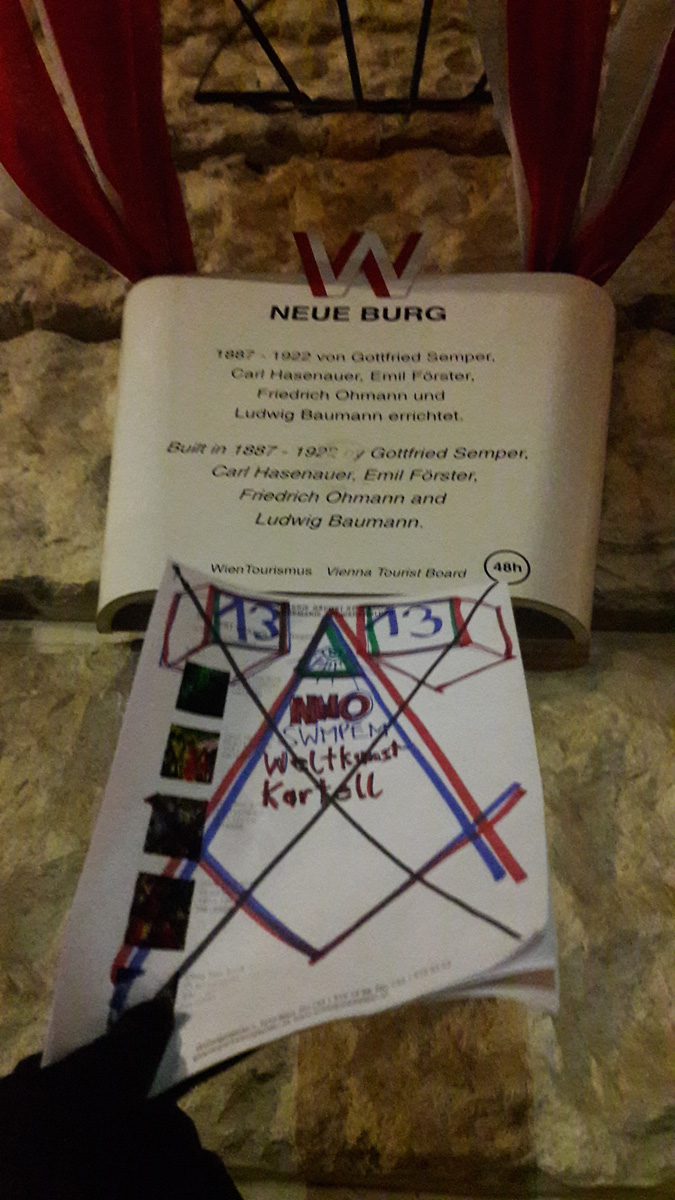 W
NEUE BURG
1887 - 1922 von Gottfried Semper,
Carl Hasenauer, Emil Förster,
Friedrich Ohmann und
Ludwig Baumann errichtet.
Built in 1887 - 1922 by Gottfried Semper,
Carl Hasenauer, Emil Förster,
Friedrich Ohmann and
Ludwig Baumann.
WienTourismus Vienna Tourist Board 48h
13 13
NWO
SWMPEM
Weltkunst
Kartell